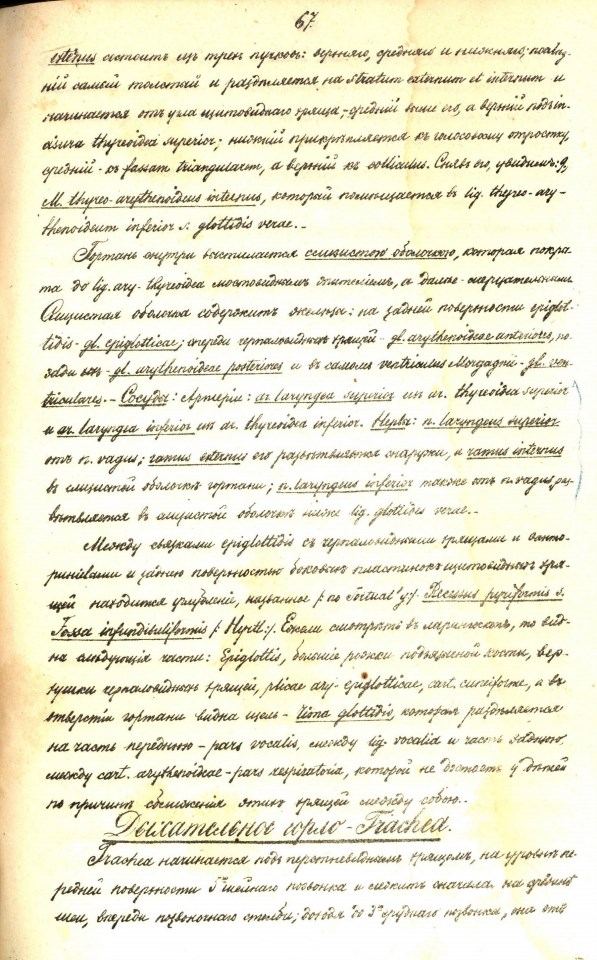 67.
externus состоитъ изъ трехъ пучковъ: верхняго, средняго и нижняго; послѣд-
ній самый толстый и раздѣляется на stratum externum et internum и
начинается отъ угла щитовиднаго хряща, средній выше его, а верхній подъ in-
cisura thyreoidea superior; нижній прикрѣпляется къ голосовому отростку,
средній - къ fossam triangularem, а верхній къ colliculus. Снявъ его, увидимъ: 9,
M. thyreo-arythenoideus internus, который помѣщается въ lig. thyreo-ary-
thenoideum inferior s. glottidis verae. -
Гортань внутри выстилается слизистою оболочкою, которая покры-
та до lig. ary-thyreoidea мостовиднымъ эпителіемъ, а далѣе - мерцательнымъ.
Слизистая оболочка содержитъ железы: на задней поверхности epiglot-
tidis - gl. epiglotticae; спереди черпаловидныхъ хрящей - gl. arythenoideae anteriores, по-
зади ихъ - gl. arythenoideae posteriores и въ самомъ ventriculus Morgagnii - gl. ven-
triculares. - Сосуды: Артеріи: ar. laryngea superior изъ ar. thyreoidea superior
и ar. laryngea inferior изъ ar. thyreoidea inferior. Нервы: n. laryngeus superior
отъ n. vagus; ramus externus его развѣтвляется снаружи, а ramus internus
въ слизистой оболочкѣ гортани; n. laryngeus inferior также отъ n. vagus, раз-
вѣтвляется въ слизистой оболочкѣ ниже lig. glottides verae. -
Между связками epiglottidis съ черпаловидными хрящами и
и заднею поверхностью боковыхъ пластинокъ щитовидныхъ хря-
щей находится углубленіе, названное /: по Tortual'у :/ Recessus pyriformis s.
Fossa infundibuliformis /: Hyrtl :/. Ежели смотрѣть въ ларингоскопъ, то вид-
на слѣдующія части: Epiglottis, большіе рожки подъязычной кости, вер-
хушки черпаловидныхъ хрящей, plicae ary-epiglotticae, cart. cuneiforme, а въ
отверстіи гортани видна щель - Rima glottidis, которая раздѣляется
на часть переднюю - pars vocalis, между lig. vocalia и часть заднюю,
между cart. arythenoideae - pars respiratoria, которой не достаетъ у дѣтей
по причинѣ сближенія этихъ хрящей между собою. -
Дыхательное горло - Trachea.
Trachea начинается подъ перстневиднымъ хрящемъ, на уровнѣ пе-
редней поверхности 5го шейнаго позвонка и лежитъ сначала на
шеи, впереди позвоночнаго столба; доходя до 3го груднаго позвонка, она